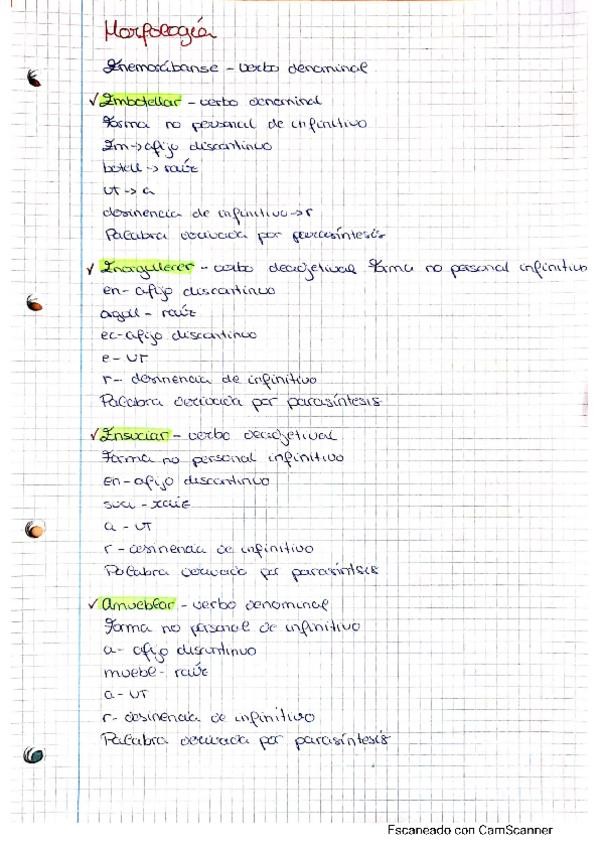 Morfología
Enemorábanse - verbo denominal
✓ Embotellar - verbo denominal
Forma no personal de infinitivo
Em → afijo discontinuo
botell → raíz
VT → a
desinencia de infinitivo → r
Palabra derivada por parasíntesis
✓ Enorgullecer - verbo deadjetival Forma no personal infinitivo
en - afijo discontinuo
orgull - raíz
ec - afijo discontinuo
e - VT
r - desinencia de infinitivo
Palabra derivada por parasíntesis
✓ Ensuciar - verbo deadjetival
Forma no personal infinitivo
En - afijo discontinuo
suci - raíz
a - VT
r - desinencia de infinitivo
Palabra derivada por parasíntesis
✓ Amueblar - verbo denominal
Forma no personal de infinitivo
a - afijo discontinuo
muebl - raíz
a - VT
r - desinencia de infinitivo
Palabra derivada por parasíntesis
Escaneado con CamScanner